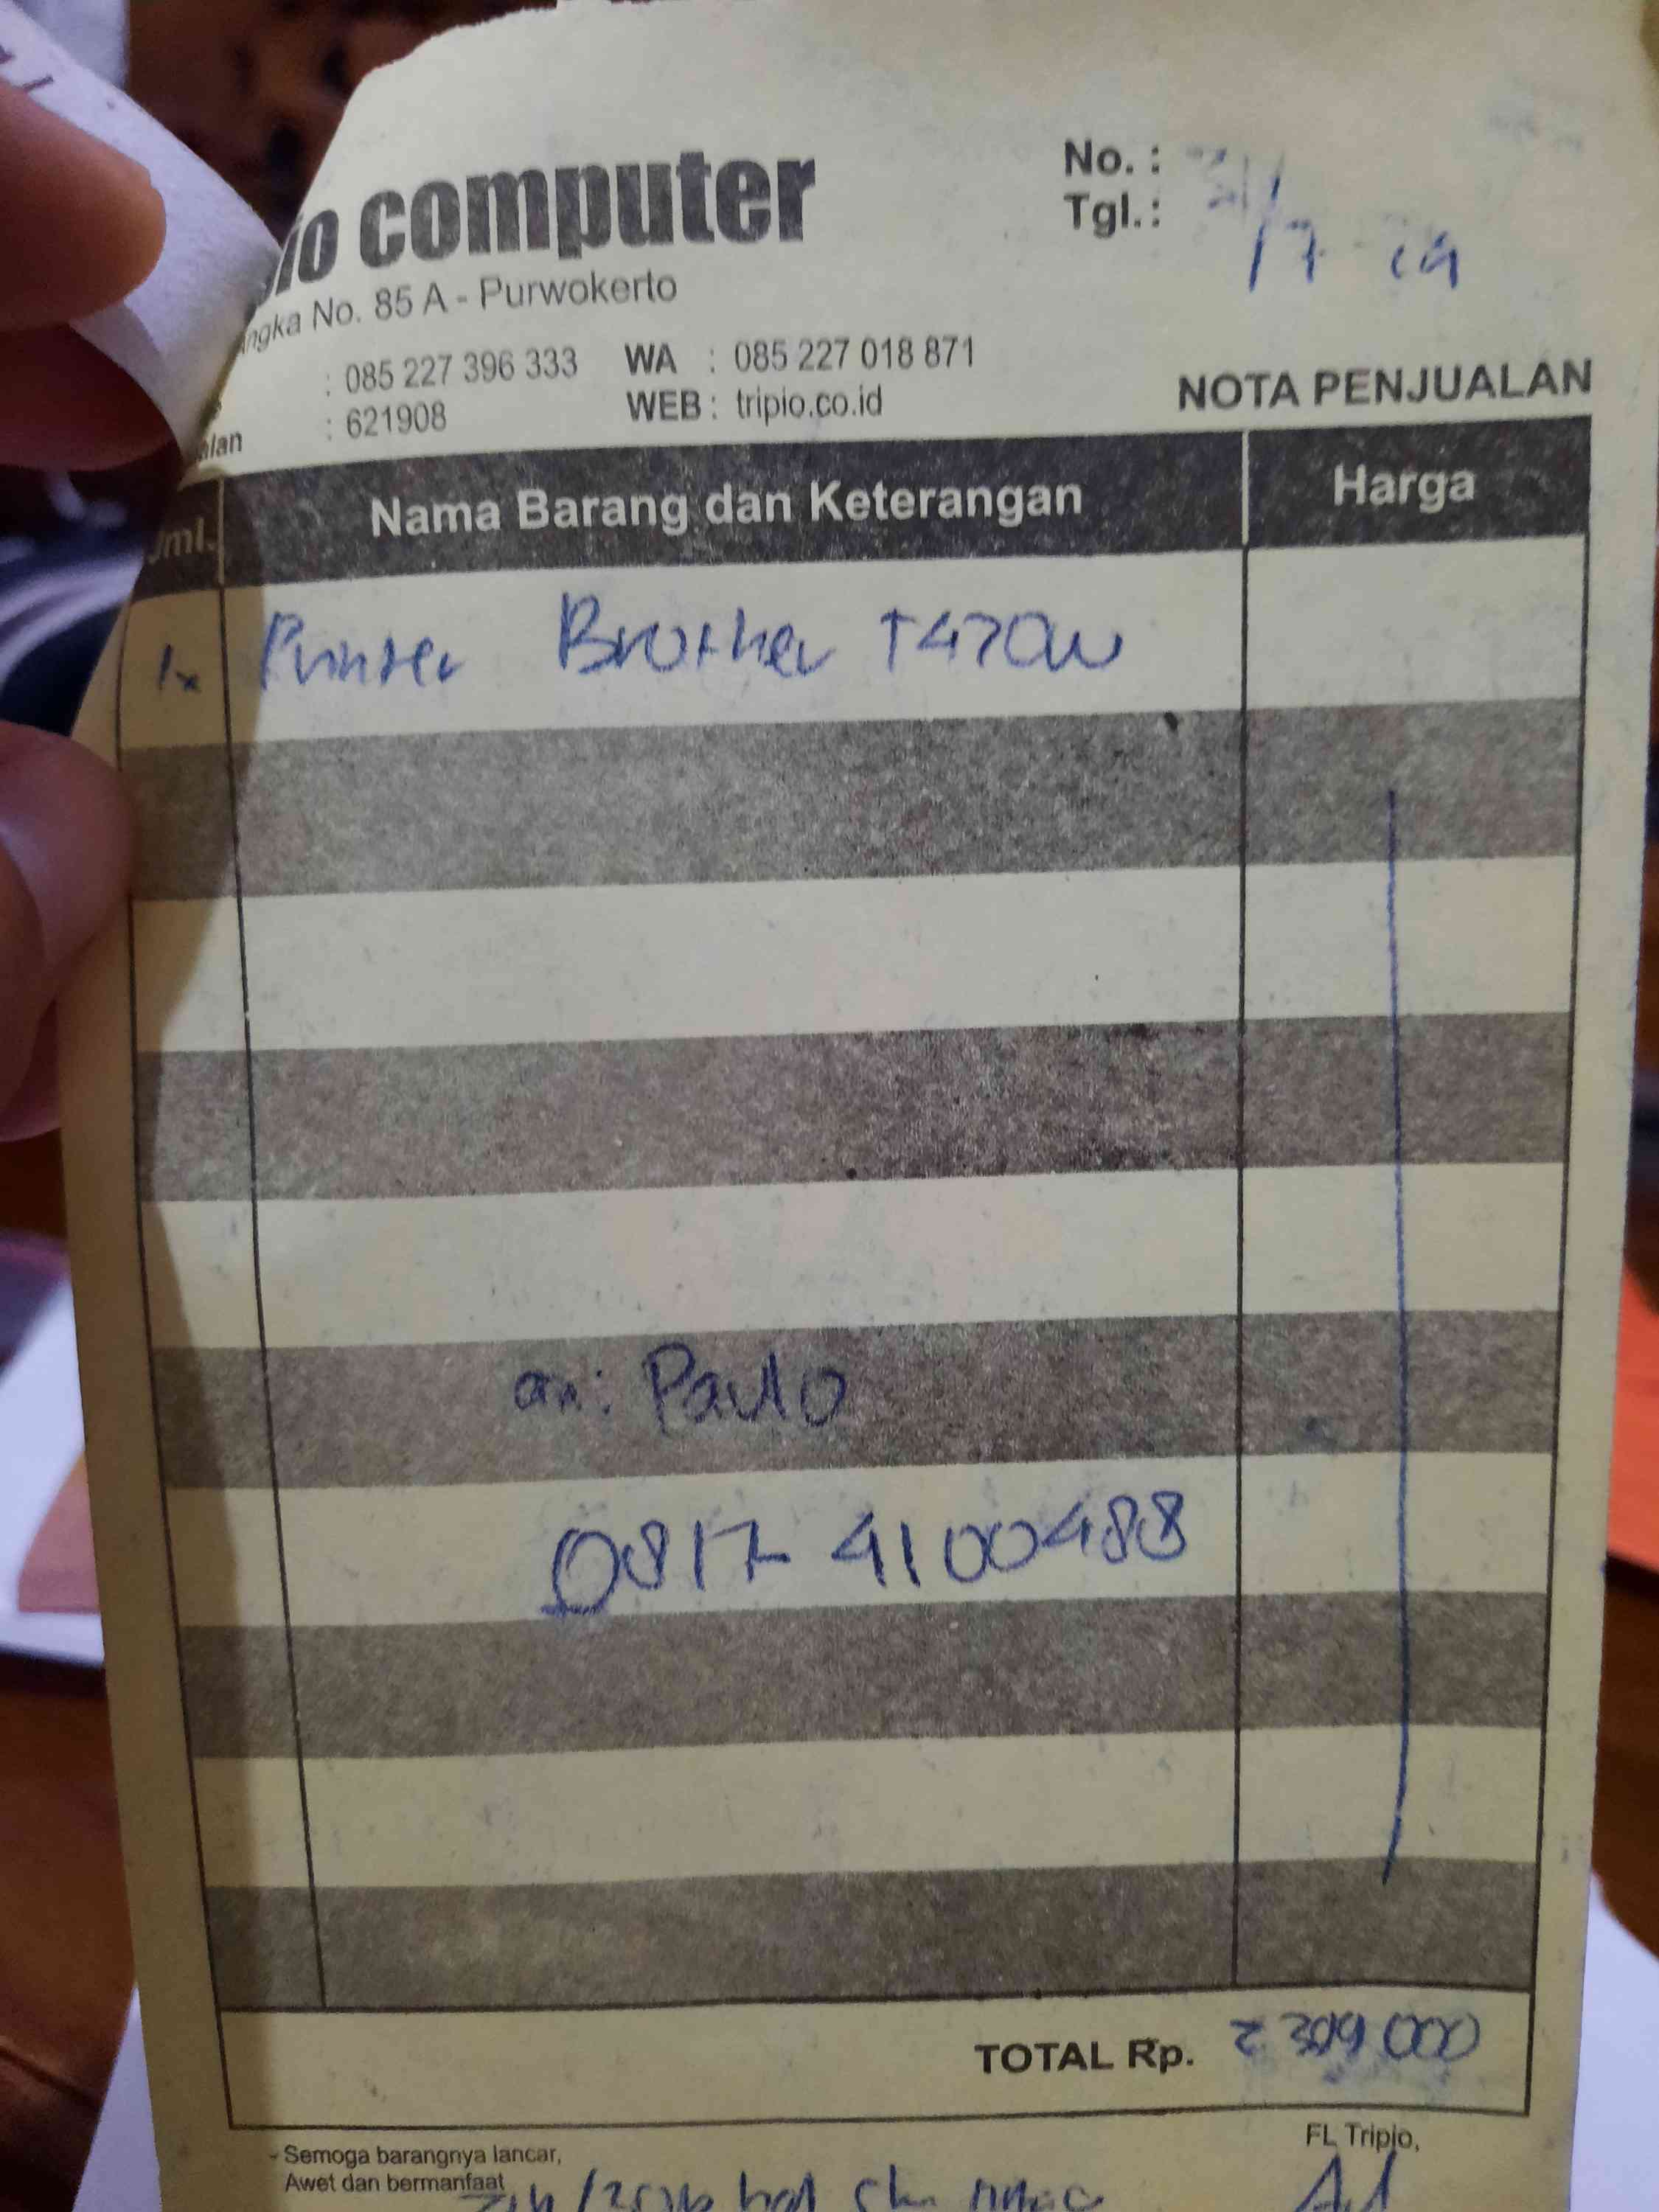 io computer
No. :
Tgl.: 31/7-19
ngka No. 85 A - Purwokerto
: 085 227 396 333 WA : 085 227 018 871
: 621908 WEB : tripio.co.id
alan
NOTA PENJUALAN
Jml. Nama Barang dan Keterangan Harga
1x Printer Brother T470w
an: Paulo
0817 4100488
TOTAL Rp. 2 399 000
- Semoga barangnya lancar,
Awet dan bermanfaat
FL Tripio,